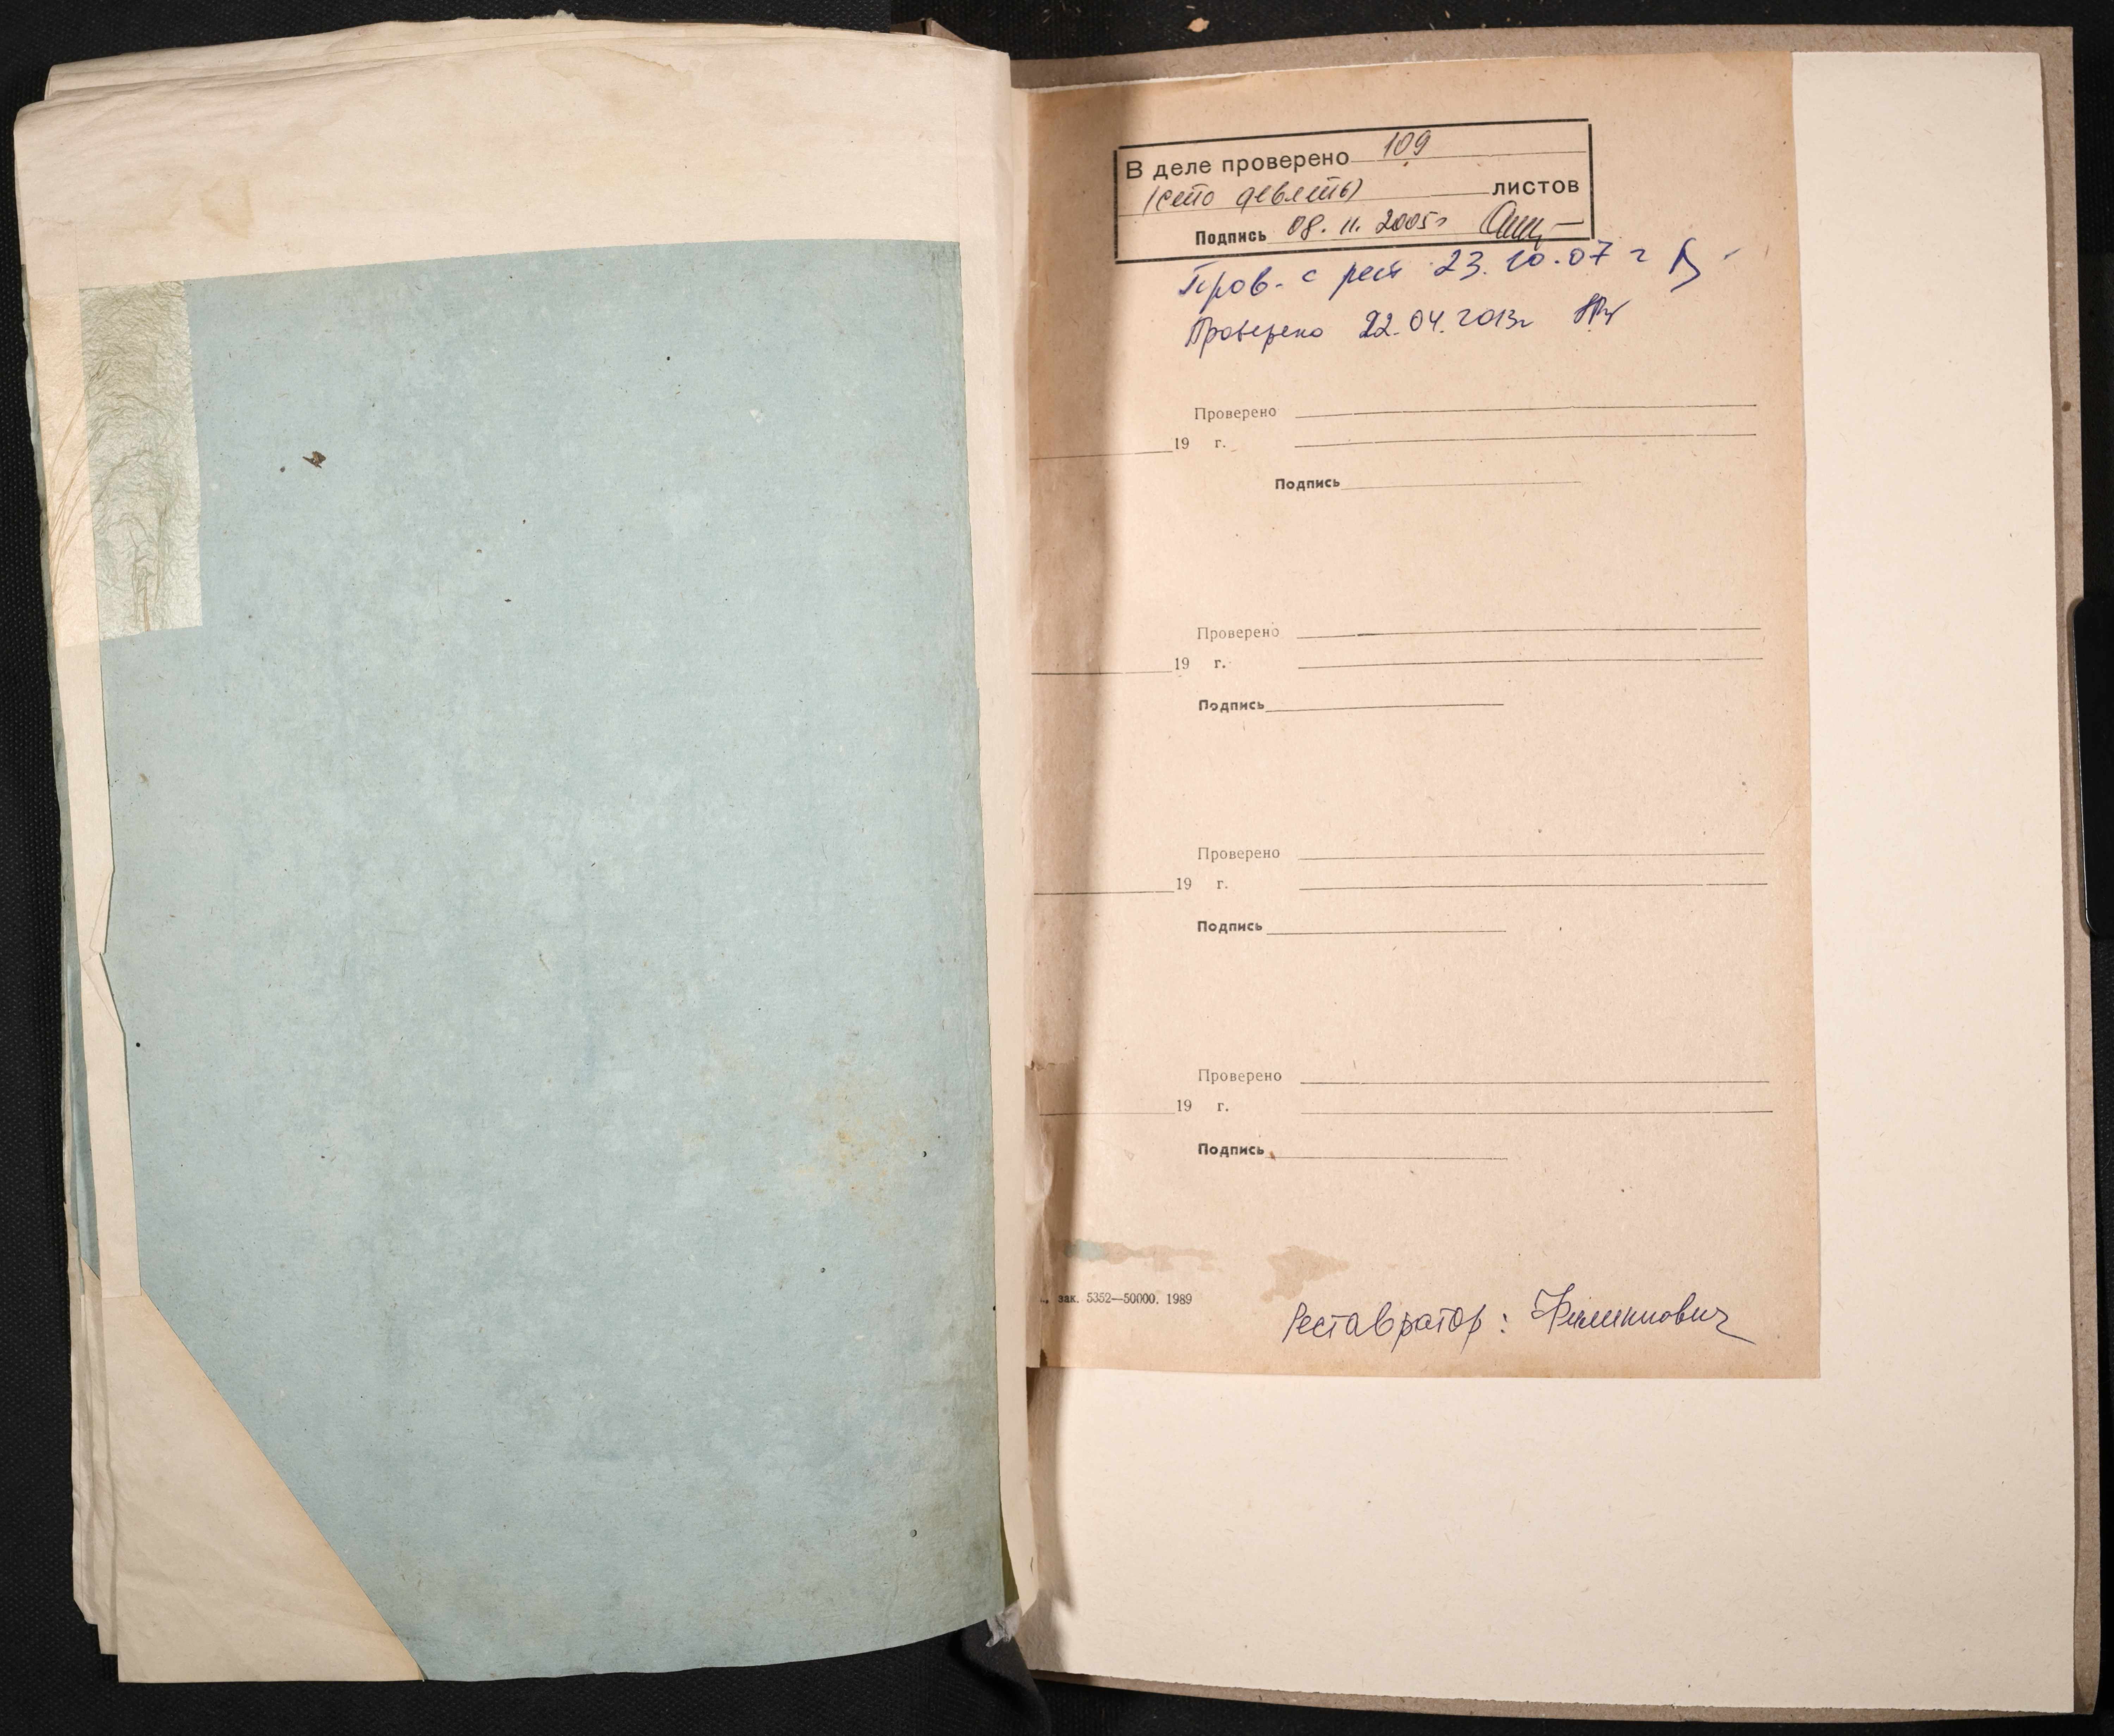 В деле проверено 109
(сто девять) листов
Подпись 08.11.2005г
Пров. с рест 23.10.07 г
Проверено 22.04.2013г
Проверено
19 г.
Подпись
Проверено
19 г.
Подпись
Проверено
19 г.
Подпись
Проверено
19 г.
Подпись
зак. 5352—50000. 1989
Реставратор: Филиппович